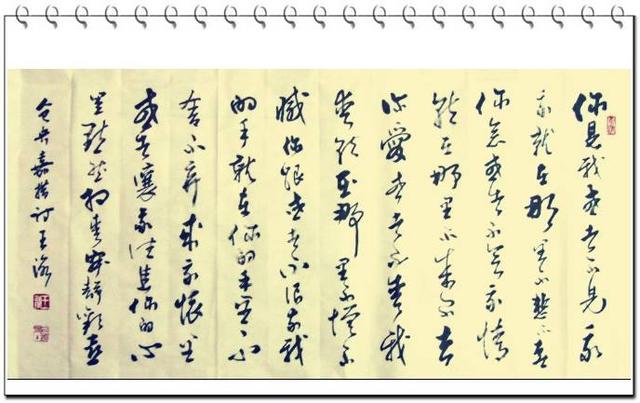 你見我或者不見我
我就在那里不悲不喜
你念或者不念我情
就在那里不来不去
你愛或者不愛我
愛就在那里不增不
减你跟或者不跟我我
的手就在你的手里不
舍不弃来我怀里
或者讓我住進你的心
里默然相愛寂静歡喜
仓央嘉措詩王